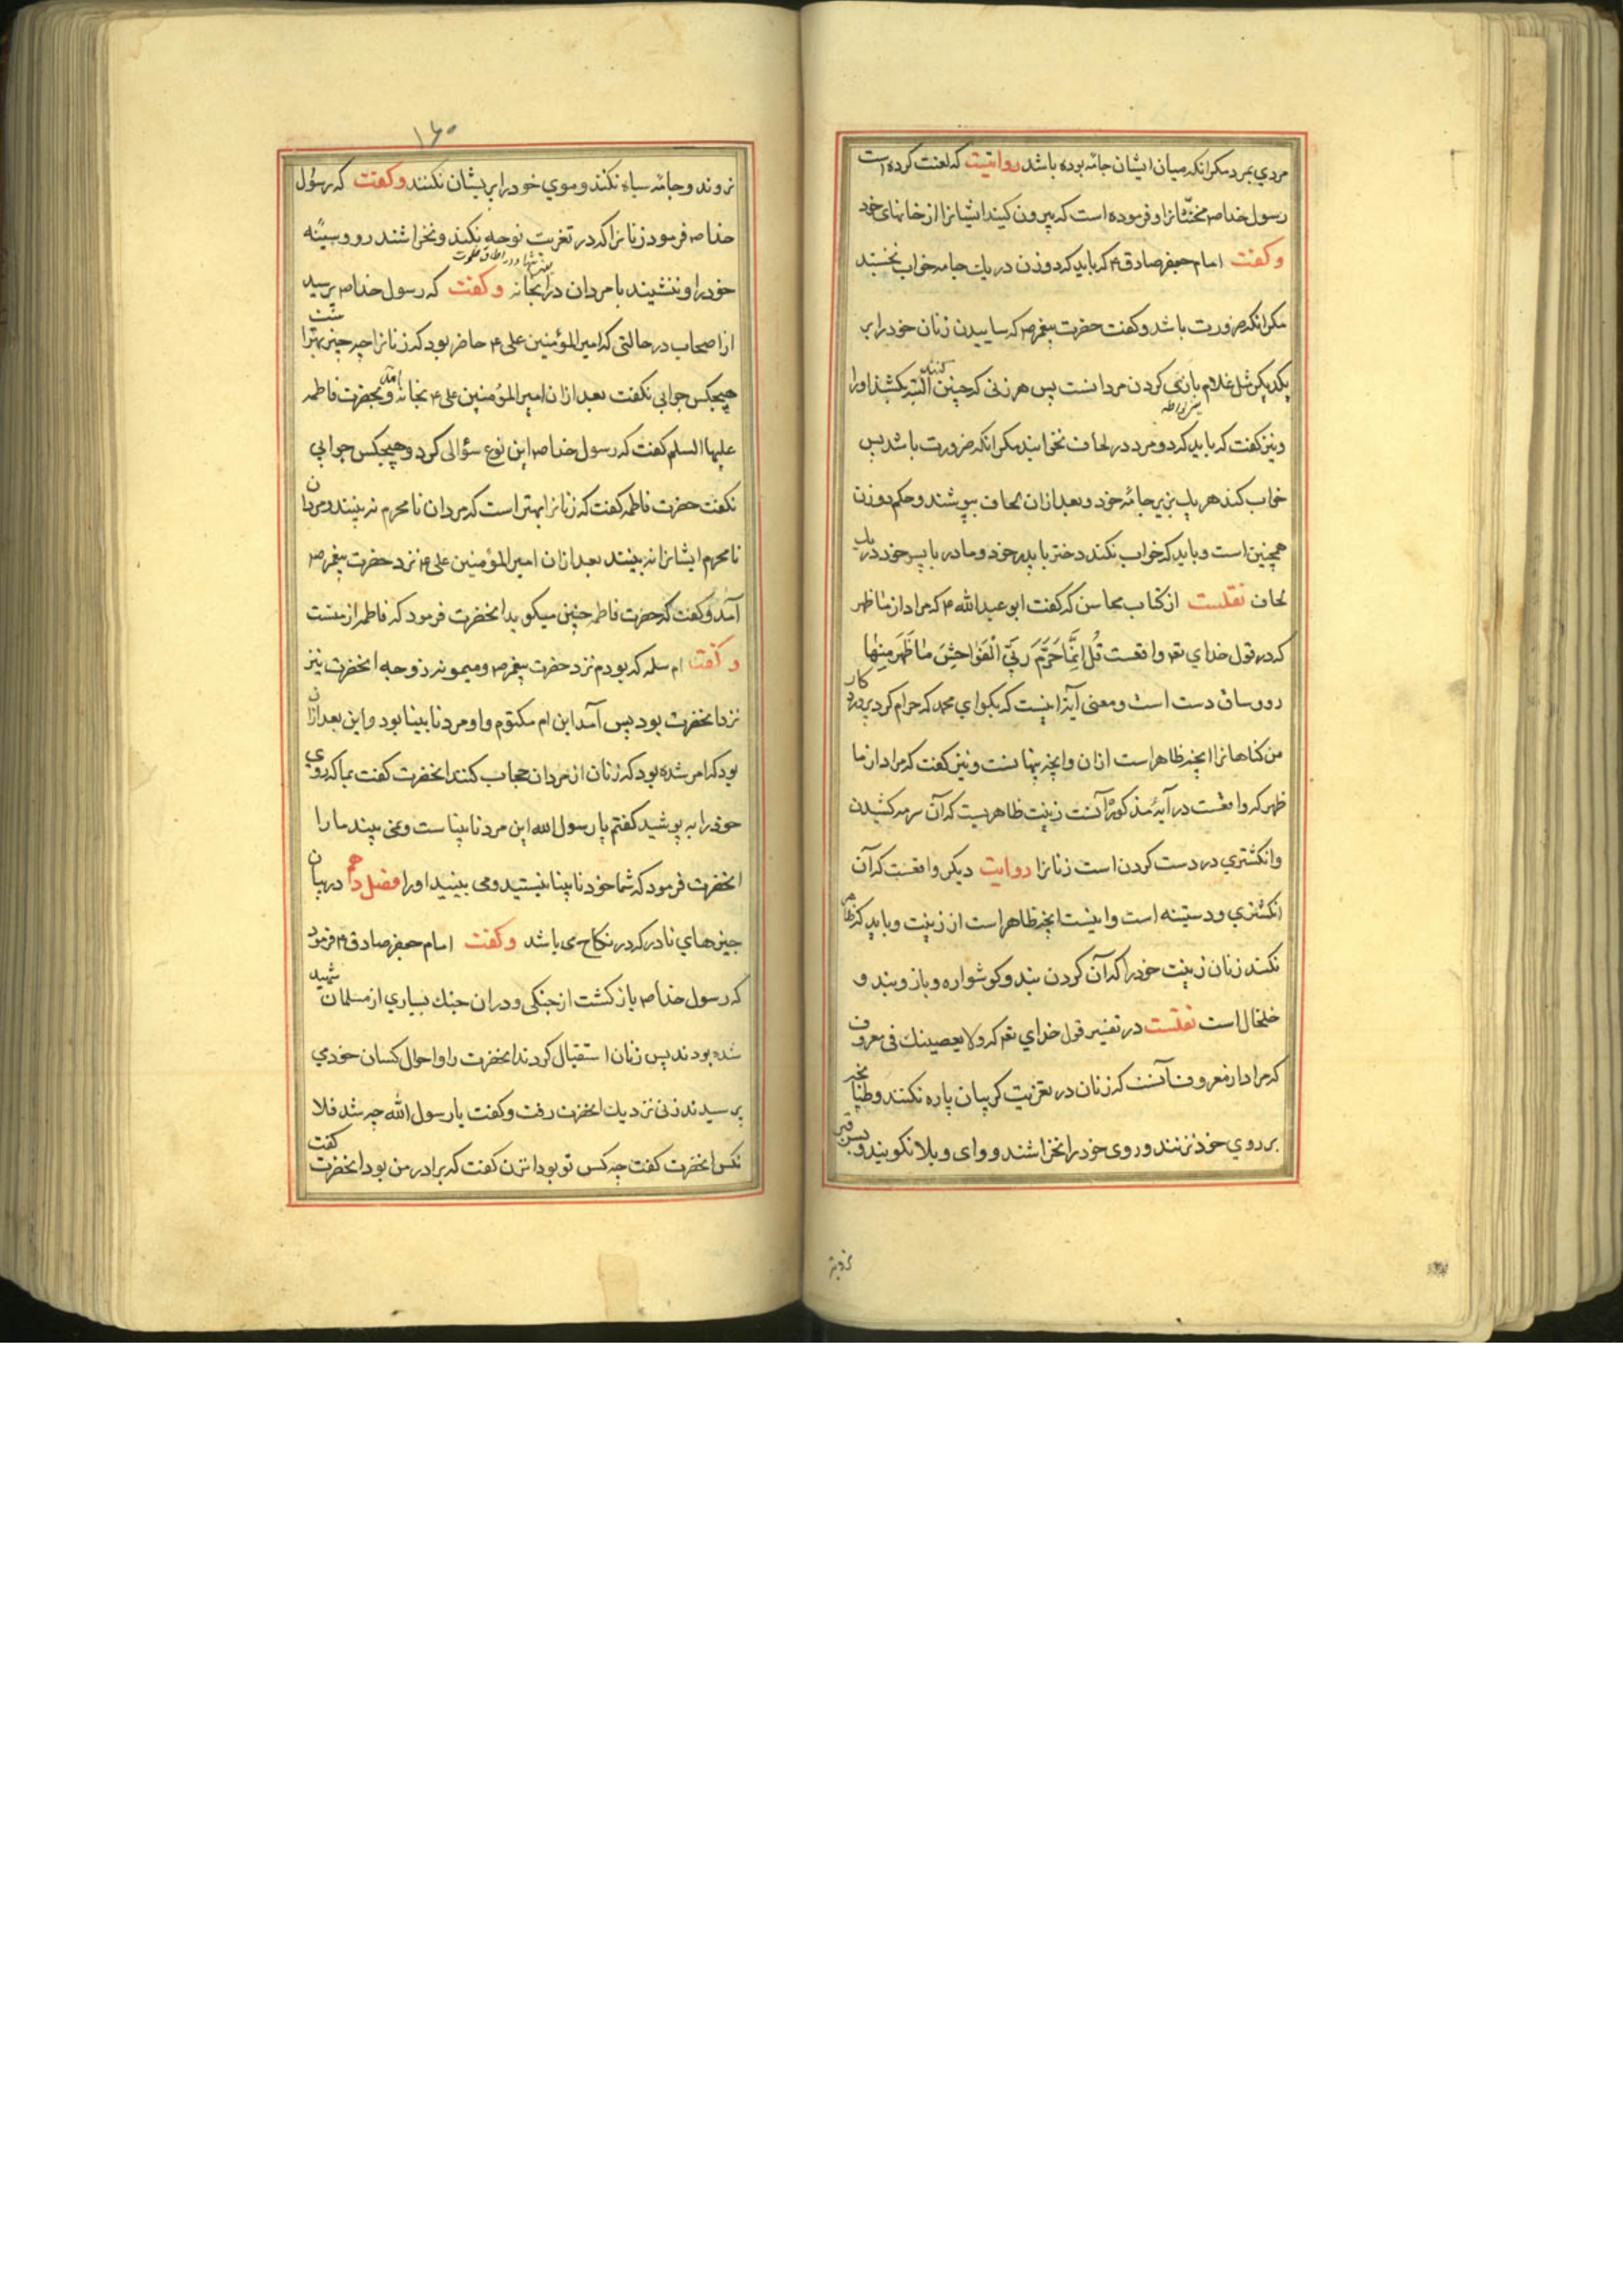 مردي بمرد مكر انكه ميان ايشان جامه بوده باشد روايتست كه لعنت كرده است
رسول خدا صم مخنّثانرا و فرموده است كه بيرون كنيد ايشانرا از خانهاى خود
و كفت امام جعفر صادق ع م كه بايد كه دو زن در يك جامه خواب نخسبند
مكر انكه ضرورت باشد و كفت حضرت پيغمبر صم كه ساييدن زنان خود را بر
يكديكر مثل غلام بازى كردن مردانست پس هر زنى كه چنين كنند البته بكشند او را
و نيز كفت كه بايد كه دو مرد در لحاف نخوابند مكر انكه ضرورت باشد پس
خواب كند هر يك بزير جامه خود و بعد از ان لحاف بپوشند و حكم دو زن
همچنين است و بايد كه خواب نكند دختر با پدر خود و مادر با پسر خود در يك
لحاف نقلست از كتاب محاسن كه كفت ابو عبد الله ع م كه مراد از ما ظهر
كه در قول خداي تع واقعست قُل اِنَّمٰا حَرَّمَ رَبِّيَ الْفَوٰاحِشَ مٰا ظَهَرَ مِنهٰا
رو و ساق دست است و معنى آيه اينست كه بكو اي محمد كه حرام كرد پرورد كار
من كناهانرا انچه ظاهر است از ان و انچه پنهانست و نيز كفت كه مراد از ما
ظهر كه واقعست در آيهٔ مذكوره آنست زينت ظاهريست كه آن سرمه كشيدن
و انكشتري در دست كردن است زنانرا روايت ديكر واقعست كه آن
انكشتري و دستينه است و اينست انچه ظاهر است از زينت و بايد كه ظاهر
نكنند زنان زينت خود را كه آن كردن بند و كوشواره و بازو بند و
خلخال است نقلست در تفسير قول خداي تع كه و لا يعصينك فى معروف
كه مراد از معروف آنست كه زنان در تعزيت كريبان پاره نكنند و طبانچه
بر روي خود نزنند و روى خود را نخراشند و واى ويلا نكويند و بسر قبر
نروند
١٦٠
نروند و جامه سياه نكنند و موي خود را پريشان نكنند و كفت كه رسول
خدا صم فرمود زنانرا كه در تعزيت نوحه نكنند و نخراشند رو و سينه
خود را و ننشينند با مردان در انجا نه و كفت كه رسول خدا صم پرسيد
از اصحاب در حالتى كه امير المؤمنين على ع م حاضر بود كه زنانرا چه چيز بهتر است
هيچكس جوابى نكفت بعد از ان امير المؤمنين على ع م بخانه آمد و بحضرت فاطمه
عليها السلم كفت كه رسول خدا صم اين نوع سؤالى كرد و هيچكس جوابي
نكفت حضرت فاطمه كفت كه زنانرا بهتر است كه مردان نامحرم نه بينند و مردان
نامحرم ايشانرا نه بينند بعد از ان امير المؤمنين على ع م نزد حضرت پيغمبر صم
آمد و كفت كه حضرت فاطمه چنين ميكويد انحضرت فرمود كه فاطمه از منست
و كفت ام سلمه كه بودم نزد حضرت پيغمبر صم و ميمونه زوجه انحضرت نيز
نزد انحضرت بود پس آمد ابن ام مكتوم و او مرد نابينا بود و اين بعد از ان
بود كه امر شده بود كه زنان از مردان حجاب كنند انحضرت كفت بما كه روي
خود را به پوشيد كفتم يا رسول الله اين مرد نابيناست و نمى بيند ما را
انحضرت فرمود كه شما خود نابينا نيستيد و مى بينيد او را فصل دهم در بيان
چيزهاي نادر كه در نكاح مى باشد و كفت امام جعفر صادق ع م فرمود
كه رسول خدا صم بازكشت از جنكى و در ان جنك بسياري از مسلمانان شهيد
شده بودند پس زنان استقبال كردند انحضرت را و احوال كسان خود مي
پرسيدند زنى نزديك انحضرت رفت و كفت يا رسول الله چه شد فلا
نكس انحضرت كفت چه كس تو بود انزن كفت كه برادر من بود انحضرت كفت